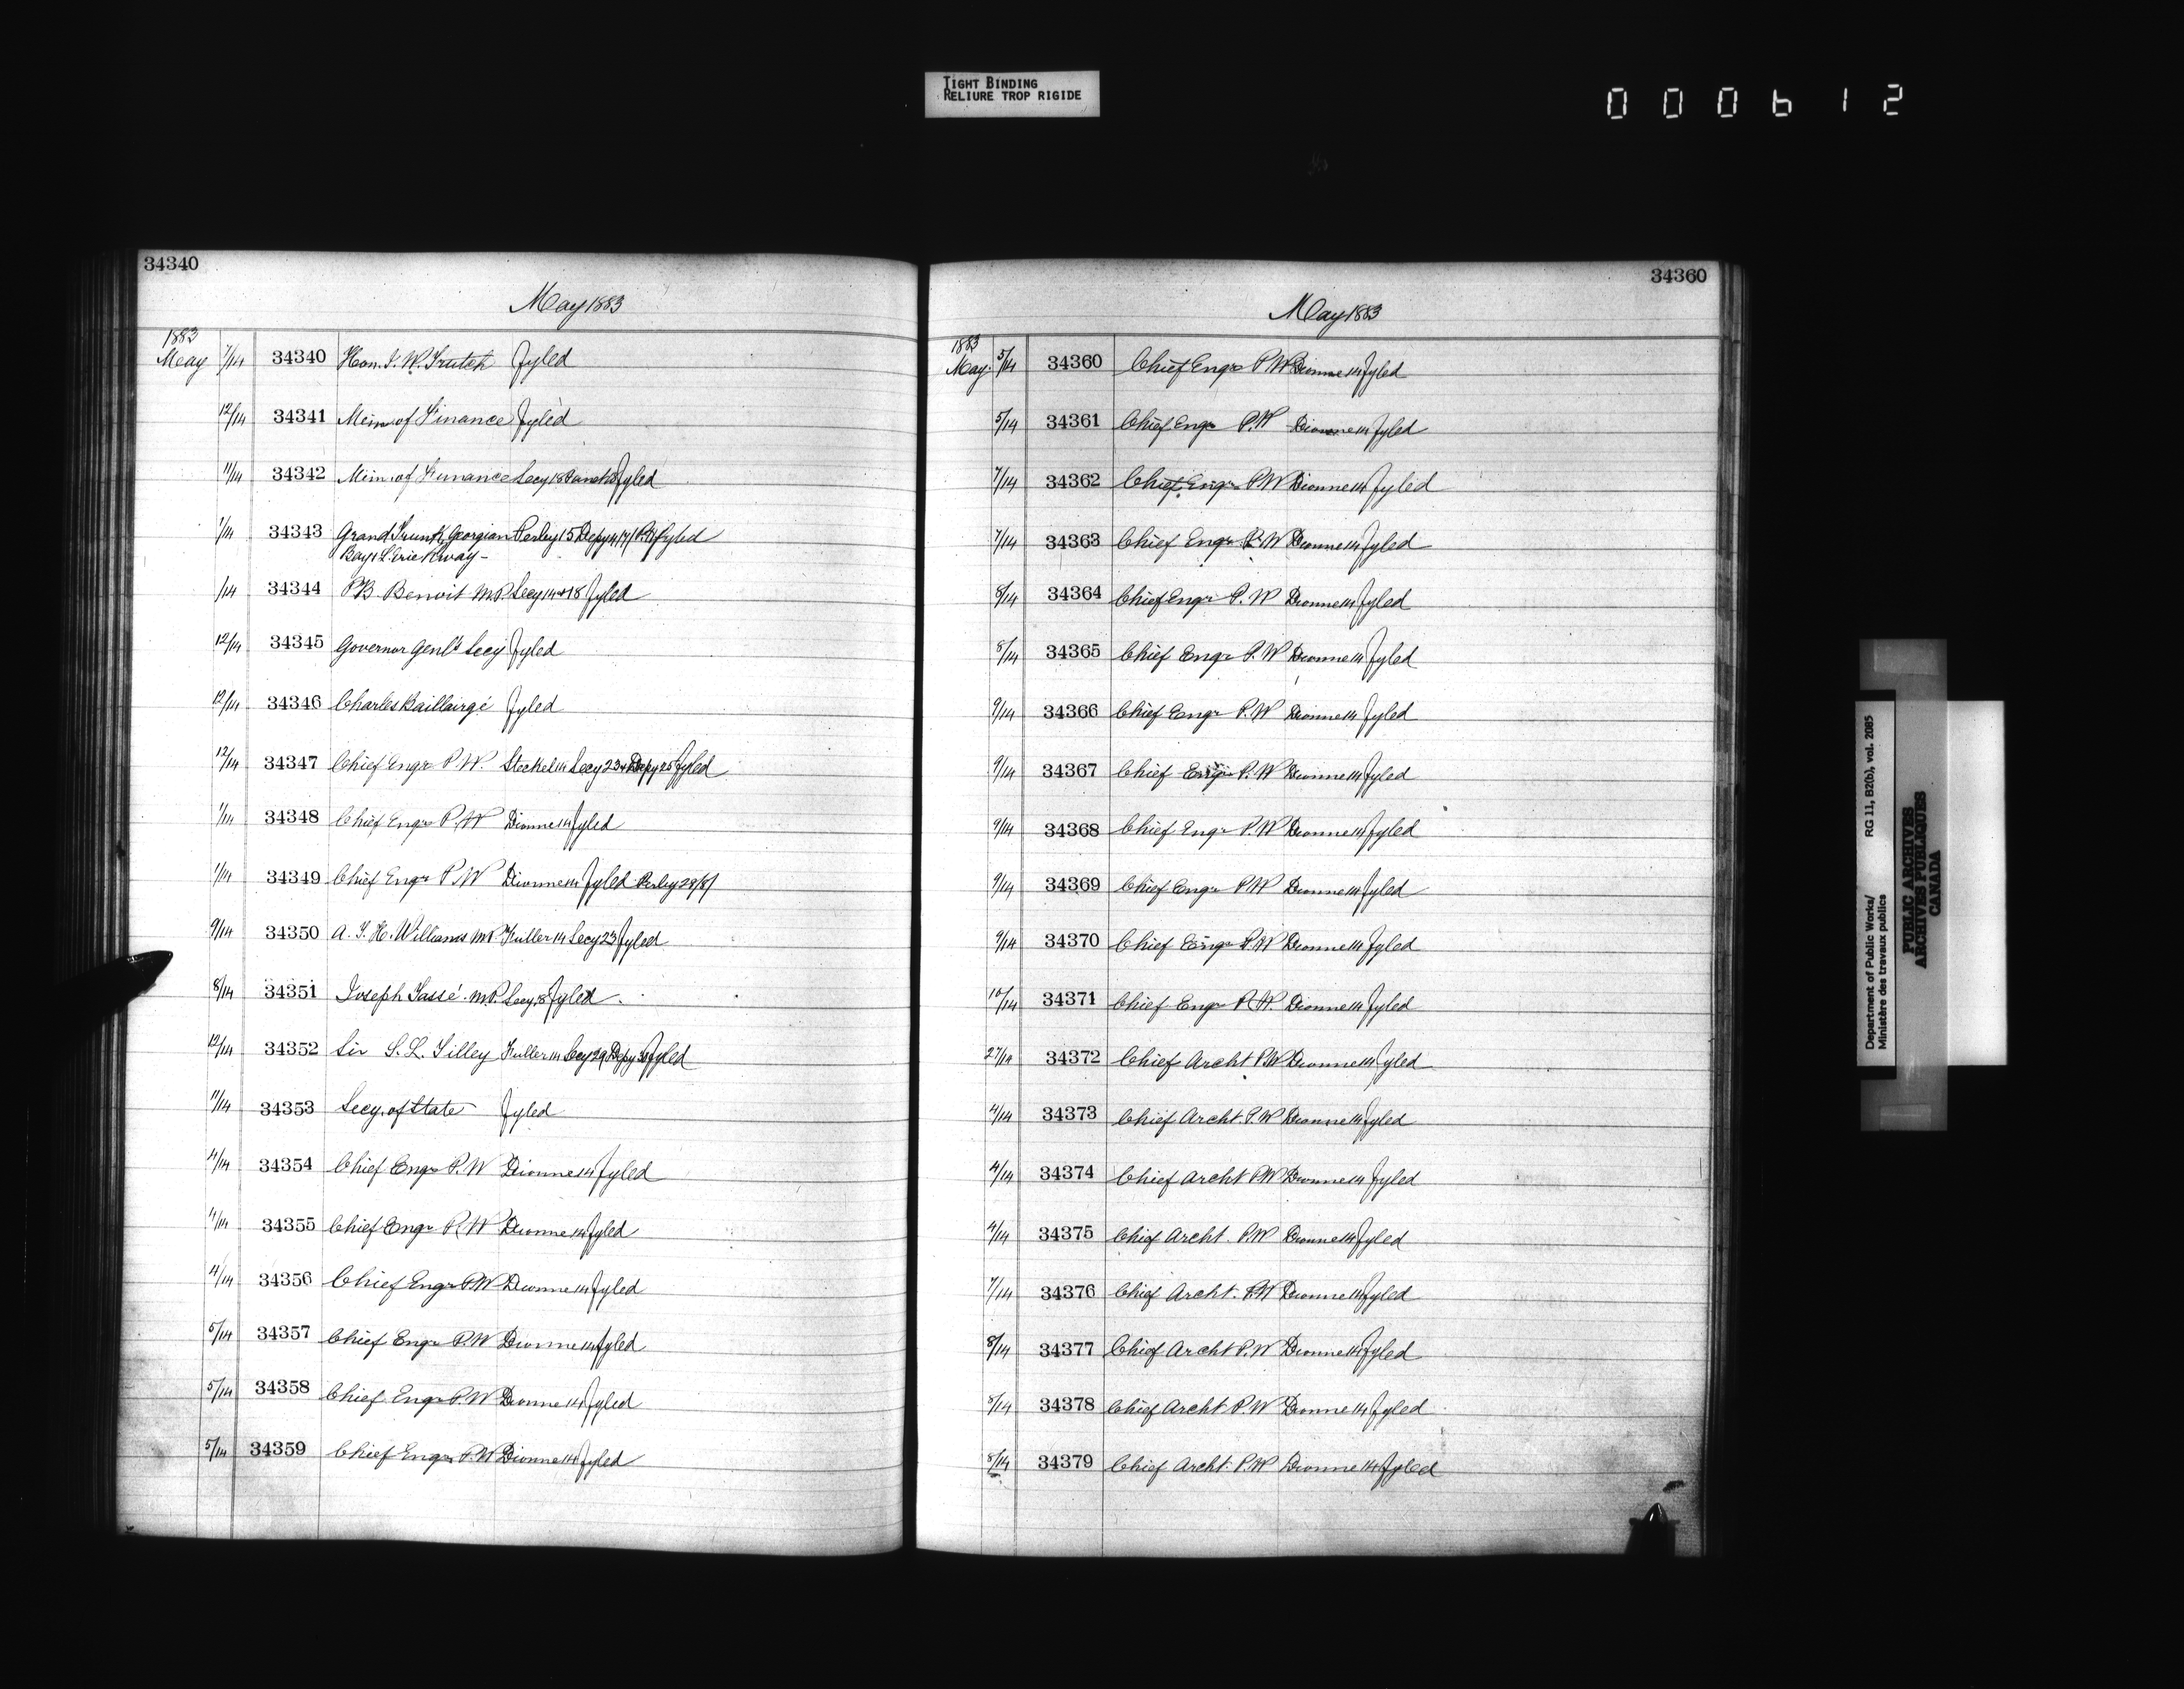 TIGHT BINDING
RELIURE TROP RIGIDE
000612
34340
May 1883
1883
May 7/14 34340 Hon. J. W. Trutch Fyled
12/14 34341 Min. of Finance Fyled
11/14 34342 Min. of Finance Secy 18 Fyled
1/14 34343 Grand Trunk Georgian Perley 15 Depy Fyled
Bay & L. Erie Rway -
/14 34344 P B Benoit M.P. Secy 14 & 18 Fyled
12/14 34345 Governor Genl's Secy Fyled
12/14 34346 Charles Baillairgé Fyled
12/14 34347 Chief Engr P.W. Steckel 14 Secy 23 & Depy 25 Fyled
1/14 34348 Chief Engr P.W Dionne 14 Fyled
1/14 34349 Chief Engr P.W Dionne 14 Fyled Perley 28/8/
9/14 34350 A. T. H. Williams MP Fuller 14 Secy 23 Fyled
8/14 34351 Joseph Tassé M.P. Secy 18 Fyled
12/14 34352 Sir S. L. Tilley Fuller 14 Secy 29 Depy 30 Fyled
11/14 34353 Secy. of State Fyled
4/14 34354 Chief Engr P.W Dionne 14 Fyled
4/14 34355 Chief Engr P.W Dionne 14 Fyled
4/14 34356 Chief Engr P.W Dionne 14 Fyled
5/14 34357 Chief Engr P.W Dionne 14 Fyled
5/14 34358 Chief Engr P.W Dionne 14 Fyled
5/14 34359 Chief Engr P.W Dionne 14 Fyled
34360
May 1883
1883
May. 5/14 34360 Chief Engr P.W Dionne 14 Fyled
5/14 34361 Chief Engr P.W Dionne 14 Fyled
7/14 34362 Chief Engr P.W Dionne 14 Fyled
7/14 34363 Chief Engr P.W Dionne 14 Fyled
8/14 34364 Chief Engr P.W Dionne 14 Fyled
8/14 34365 Chief Engr P.W Dionne 14 Fyled
9/14 34366 Chief Engr P.W Dionne 14 Fyled
9/14 34367 Chief Engr P.W Dionne 14 Fyled
9/14 34368 Chief Engr P.W Dionne 14 Fyled
9/14 34369 Chief Engr P.W Dionne 14 Fyled
9/14 34370 Chief Engr P.W Dionne 14 Fyled
10/14 34371 Chief Engr P.W. Dionne 14 Fyled
27/14 34372 Chief Archt P.W Dionne 14 Fyled
4/14 34373 Chief Archt. P.W Dionne 14 Fyled
4/14 34374 Chief Archt P.W Dionne 14 Fyled
4/14 34375 Chief Archt. P.W Dionne 14 Fyled
7/14 34376 Chief Archt. P.W Dionne 14 Fyled
8/14 34377 Chief Archt P.W Dionne 14 Fyled
8/14 34378 Chief Archt P.W Dionne 14 Fyled
8/14 34379 Chief Archt. P.W Dionne 14 Fyled
Department of Public Works/ RG 11, B2(b), vol. 2085
Ministère des travaux publics
PUBLIC ARCHIVES
ARCHIVES PUBLIQUES
CANADA